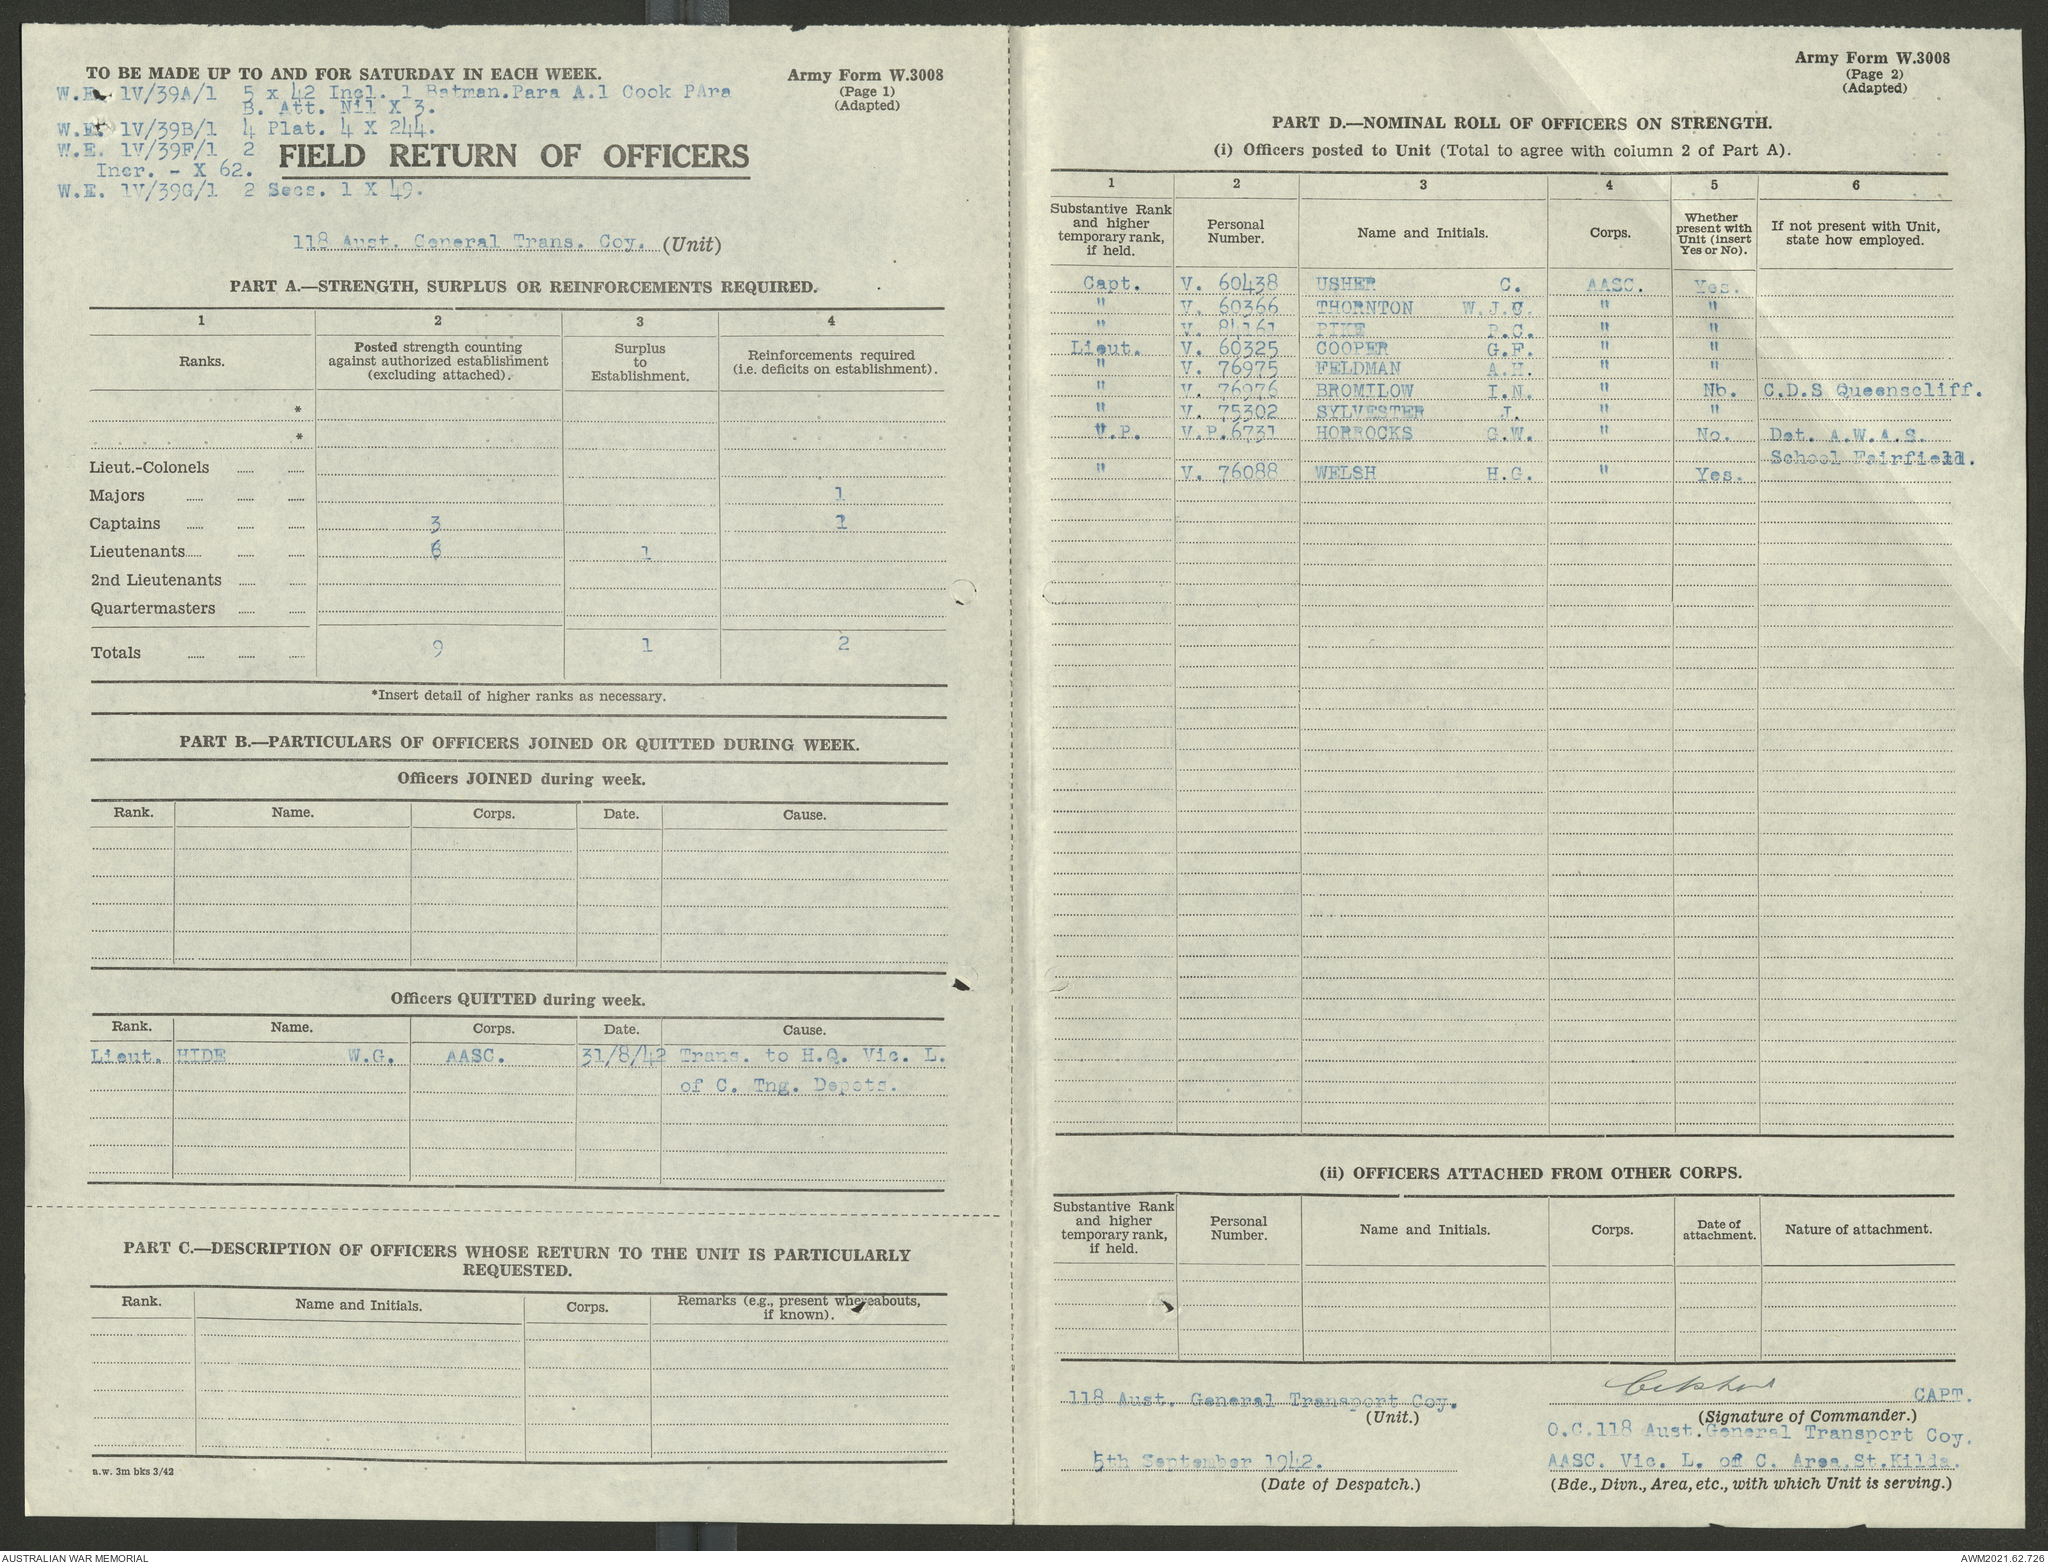 TO BE MADE UP TO AND FOR SATURDAY IN EACH WEEK.
Army Form W.3008
(Page 1)
(Adapted)
W.E. 1V/39A/1 5 x 42 Incl. 1 Batman.Para A.1 Cook PAra
B. Att. Nil X 3.
W.E. 1V/39B/1 4 Plat. 4 X 244.
W.E. 1V/39F/1 2
Incr. - X 62.
W.E. 1V/39G/1 2 Secs. 1 X 49.
FIELD RETURN OF OFFICERS
118 Aust. General Trans. Coy. (Unit)
PART A.—STRENGTH, SURPLUS OR REINFORCEMENTS REQUIRED.
1 2 3 4
Ranks. Posted strength counting against authorized establishment (excluding attached). Surplus to Establishment. Reinforcements required (i.e. deficits on establishment).
*
*
Lieut.-Colonels
Majors 1
Captains 3 1
Lieutenants 6 1
2nd Lieutenants
Quartermasters
Totals 9 1 2
*Insert detail of higher ranks as necessary.
PART B.—PARTICULARS OF OFFICERS JOINED OR QUITTED DURING WEEK.
Officers JOINED during week.
Rank. Name. Corps. Date. Cause.
Officers QUITTED during week.
Rank. Name. Corps. Date. Cause.
Lieut. HIDE W.G. AASC. 31/8/42 Trans. to H.Q. Vic. L.
of C. Tng. Depots.
PART C.—DESCRIPTION OF OFFICERS WHOSE RETURN TO THE UNIT IS PARTICULARLY
REQUESTED.
Rank. Name and Initials. Corps. Remarks (e.g., present whereabouts, if known).
a.w. 3m bks 3/42
Army Form W.3008
(Page 2)
(Adapted)
PART D.—NOMINAL ROLL OF OFFICERS ON STRENGTH.
(i) Officers posted to Unit (Total to agree with column 2 of Part A).
1 2 3 4 5 6
Substantive Rank and higher temporary rank, if held. Personal Number. Name and Initials. Corps. Whether present with Unit (insert Yes or No). If not present with Unit, state how employed.
Capt. V. 60438 USHER C. AASC. Yes.
" V. 60366 THORNTON W.J.C. " "
" V. 84161 PIKE R.C. " "
Lieut. V. 60325 COOPER G.F. " "
" V. 76975 FELDMAN A.H. " "
" V. 76976 BROMILOW I.N. " No. C.D.S Queenscliff.
" V. 75302 SYLVESTER J. " "
".P. V.P.6731 HORROCKS G.W. " No. Det. A.W.A.S.
School Fairfield.
" V. 76088 WELSH H.G. " Yes.
(ii) OFFICERS ATTACHED FROM OTHER CORPS.
Substantive Rank and higher temporary rank, if held. Personal Number. Name and Initials. Corps. Date of attachment. Nature of attachment.
118 Aust. General Transport Coy.
(Unit.)
CAPT.
(Signature of Commander.)
O.C.118 Aust.General Transport Coy.
5th September 1942.
(Date of Despatch.)
AASC. Vic. L. of C. Area.St.Kilda.
(Bde., Divn., Area, etc., with which Unit is serving.)
AUSTRALIAN WAR MEMORIAL
AWM2021.62.726